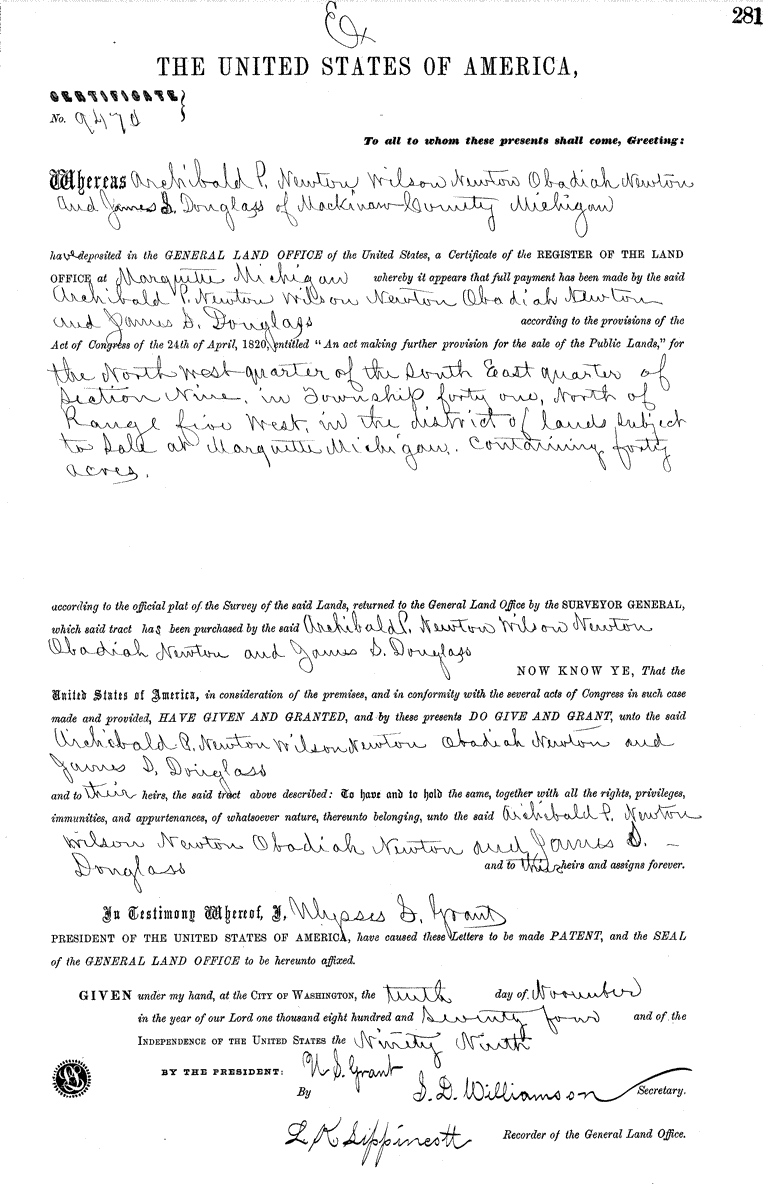 281
Ex
THE UNITED STATES OF AMERICA,
CERTIFICATE
No.
To all to whom these presents shall come, Greeting:
Whereas Archibald P. Newton Wilson Newton Obadiah Newton
and James S. Douglass of Mackinaw County Michigan
have deposited in the GENERAL LAND OFFICE of the United States, a Certificate of the REGISTER OF THE LAND
OFFICE at Marquette Michigan whereby it appears that full payment has been made by the said
Archibald P. Newton Wilson Newton Obadiah Newton
and James S. Douglass according to the provisions of the
Act of Congress of the 24th of April, 1820, entitled "An act making further provision for the sale of the Public Lands," for
the North West quarter of the South East quarter of
Section Nine, in Township forty one, North of
Range five West, in the district of lands subject
to Sale at Marquette Michigan. Containing forty
acres.
according to the official plat of the Survey of the said Lands, returned to the General Land Office by the SURVEYOR GENERAL,
which said tract has been purchased by the said Archibald P. Newton Wilson Newton
Obadiah Newton and James S. Douglass
NOW KNOW YE, That the
United States of America, in consideration of the premises, and in conformity with the several acts of Congress in such case
made and provided, HAVE GIVEN AND GRANTED, and by these presents DO GIVE AND GRANT, unto the said
Archibald P. Newton Wilson Newton Obadiah Newton and
James S. Douglass
and to their heirs, the said tract above described: To have and to hold the same, together with all the rights, privileges,
immunities, and appurtenances, of whatsoever nature, thereunto belonging, unto the said Archibald P. Newton
Wilson Newton Obadiah Newton and James S. –
Douglass and to their heirs and assigns forever.
In Testimony Whereof, I, Ulysses S. Grant
PRESIDENT OF THE UNITED STATES OF AMERICA, have caused these Letters to be made PATENT, and the SEAL
of the GENERAL LAND OFFICE to be hereunto affixed.
GIVEN under my hand, at the CITY OF WASHINGTON, the tenth day of November
in the year of our Lord one thousand eight hundred and Seventy four and of the
INDEPENDENCE OF THE UNITED STATES the Ninety Ninth
BY THE PRESIDENT: U. S. Grant
By S. D. Williamson Secretary.
L K Lippincott Recorder of the General Land Office.